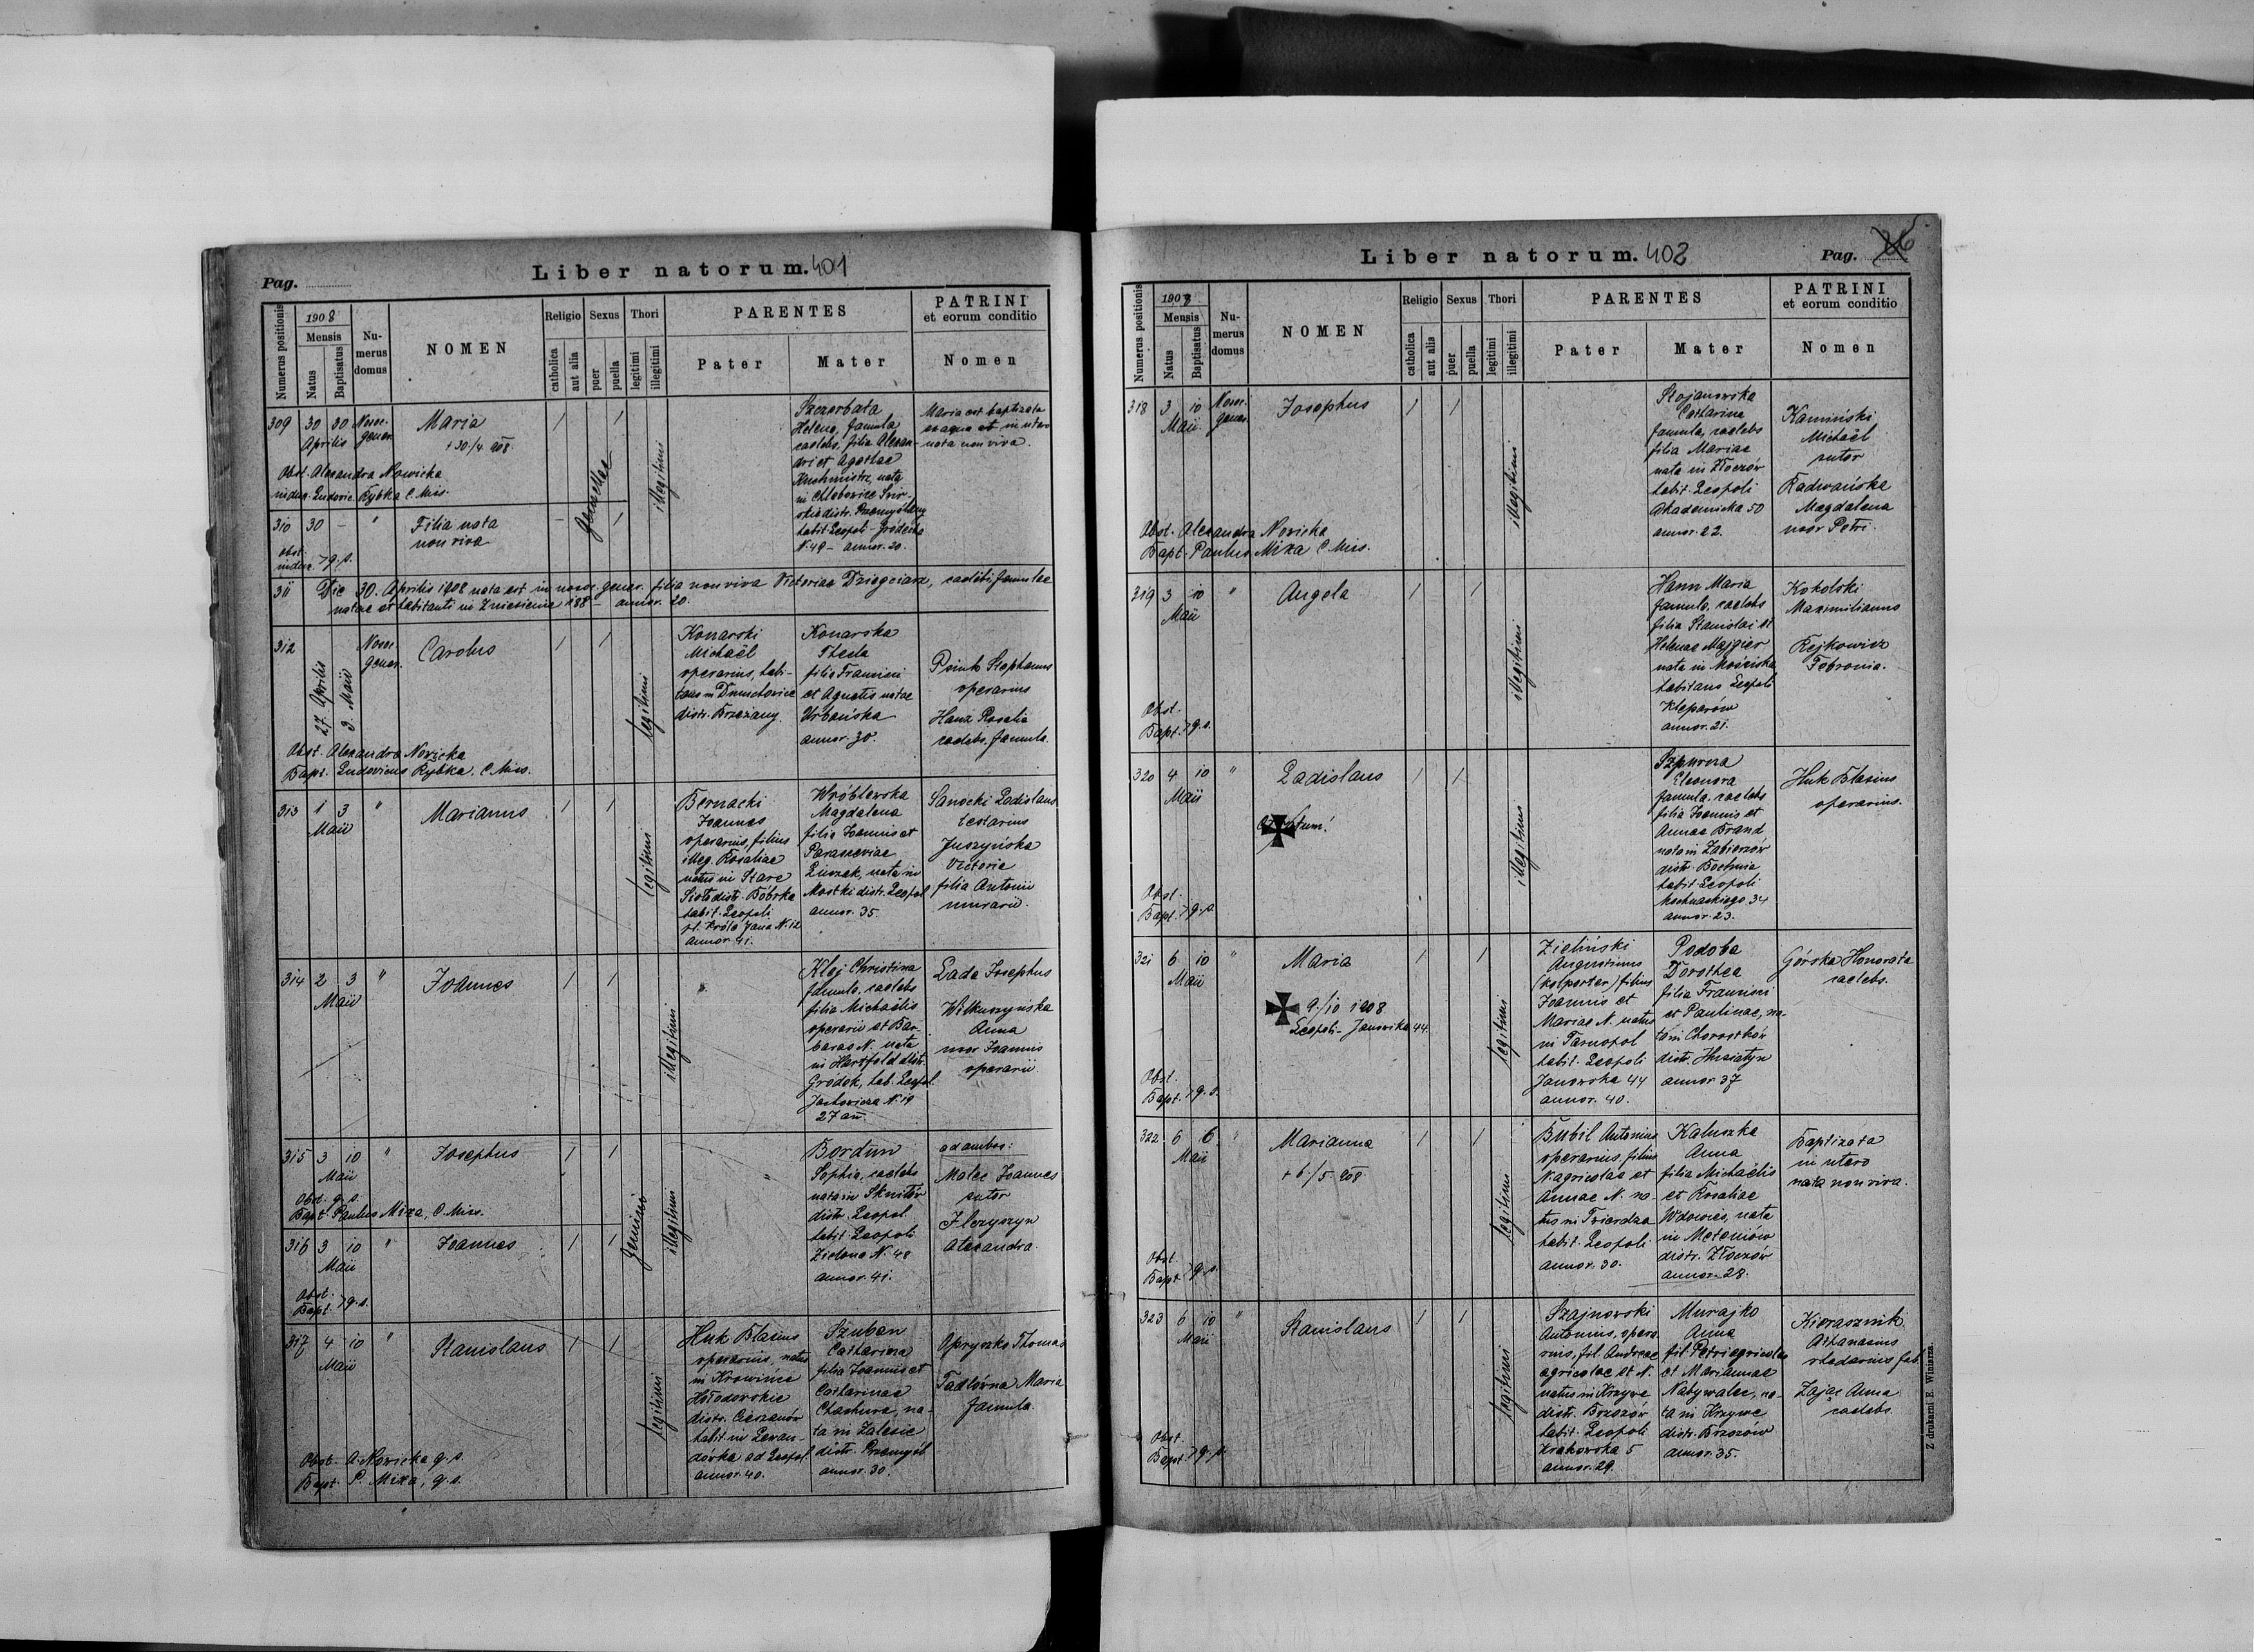 Pag.
Liber natorum. 401
Numerus positionis
1908
Mensis
Natus
Baptisatus
Numerus domus
NOMEN
Religio
catholica
aut alia
Sexus
puer
puella
Thori
legitimi
illegitimi
PARENTES
Pater
Mater
PATRINI
et eorum conditio
Nomen
309 30 30 Nosoc.
Aprilis gener.
Maria
+30/4. 908.
Obst. Alexandra Nowicka
Ludovic. Rybka C. Miss.
gemellae
illegitimi
Szczerbata
Helena, famula
caelebs, filia Alexan-
dri et Agathae
nata
in Chlebowice Świr-
skie distr. Przemyślany
habit. Leopoli - Gródecka
N. 49 - annor. 20.
Maria est baptizata
ex aqua et in utero
nata non viva.
310 30 - "
Filia nata
non viva
Obst.
q. s.
311 Die 30. Aprilis 1908 nata est in nosoc. gener. filia non viva Victoriae Dziegciarz, caelebi, famulae
natae et habitanti in Zniesienie 188 - annor. 20.
312 27. Aprilis 3. Maii
Nosoc.
gener.
Carolus
legitimi
Konarski
Michaël
operarius, habi-
tans in Dmuchowice
distr. Brzeżany.
Konarska
Thecla
filia Francisci
et Agnetis natae
Urbańska
annor. 30.
Stephanus
operarius
Hanz Rosalia
caelebs, famula.
Obst. Alexandra Nowicka
Bapt. Ludovicus Rybka, C. Miss.
313 1 3 "
Maii
Marianus
legitimi
Bernacki
Joannes
operarius, filius
illeg. Rosaliae
natus in Stare
Sioło distr. Bóbrka
habit. Leopoli
pl. Króla Jana N. 12
annor. 41.
Wróblewska
Magdalena
filia Joannis et
Parasceviae
nata in
Mostki distr. Leopol.
annor. 35.
Sanocki Ladislaus
Juszyńska
Victoria
filia Antonii
murarii.
314 2 3 "
Maii
Joannes
illegitimi
Klej Christina
famula, caelebs
filia Michaëlis
operarii et Bar-
barae N. nata
in Hartfeld distr.
Gródek, hab. Leopol.
Jachowicza N. 19
27 an.
Lada Josephus
Witkuszyńska
Anna
uxor Joannis
operarii.
315 3 10 "
Maii
Josephus
Obst. q. s.
Bapt. Paulus Miza, C. Miss.
gemini
illegitimi
Bordun
Sophia, caelebs
nata in Sknilów
distr. Leopol.
habit. Leopoli
Zielona N. 48
annor. 41.
ad ambos:
Malec Joannes
sutor
Ilczyszyn
Alexandra.
316 3 10 "
Maii
Joannes
Obst.
Bapt. q. s.
317 4 10 "
Maii
Stanislaus
legitimi
Huk Blasius
operarius, natus
in Krowica
Hołodowskie
distr. Cieszanów
habit. in Lewan-
dówka ad Leopol.
annor. 40.
Szuban
Catharina
filia Joannis et
Catharinae
Chachura, na-
ta in Zalesie
distr. Przemyśl
annor. 30.
Opryszko Thomas
Tadlówna Maria
famula.
Obst. A. Nowicka q. s.
Bapt. P. Miza, q. s.
Liber natorum. 402
Pag. 26
Numerus positionis
1908
Mensis
Natus
Baptisatus
Numerus domus
NOMEN
Religio
catholica
aut alia
Sexus
puer
puella
Thori
legitimi
illegitimi
PARENTES
Pater
Mater
PATRINI
et eorum conditio
Nomen
318 3 10 Nosoc.
Maii gener.
Josephus
illegitimi
Stojanowska
Catharina
famula, caelebs
filia Mariae
nata in Złoczów
habit. Leopoli
Akademicka 50
annor. 22.
Kamiński
Michaël
sutor
Radwańska
Magdalena
uxor Petri.
Obst. Alexandra Nowicka
Bapt. Paulus Miza C. Miss.
319 3 10 "
Maii
Angela
illegitimi
Hann Maria
famula, caelebs
filia Stanislai et
Helenae Majgier
nata in Mościska
habitans Leopoli
Kleparów
annor. 21.
Kokolski
Maximilianus
Rejkowicz
Febronia.
Obst.
Bapt. q. s.
320 4 10 "
Maii
Ladislaus
illegitimi
Eleonora
famula, caelebs
filia Joannis et
Annae Brand
nata in Zabierzów
distr. Bochnia
habit. Leopoli
Kochnackiego 34
annor. 23.
Huk Blasius
operarius.
Obst.
Bapt. q. s.
321 6 10 "
Maii
Maria
9./10 1908
Leopoli - Janowska 44.
legitimi
Zieliński
Augustinus
(kolporter) filius
Joannis et
Mariae N. natus
in Tarnopol
habit. Leopoli
Janowska 44
annor. 40.
Podoba
Dorothea
filia Francisci
et Paulinae, na-
ta in Chorostków
distr. Husiatyn
annor. 37
Górska Honorata
caelebs.
Obst.
Bapt. q. s.
322 6 6 "
Maii
Marianna
+6/5. 908
legitimi
Bubil Antonius
operarius, filius
N. agricolae et
Annae N. na-
tus in Twierdza
habit. Leopoli
annor. 30.
Kaluszka
Anna
filia Michaëlis
et Rosaliae
Wdowiec, nata
in Meteniów
distr. Złoczów
annor. 28.
Baptizata
in utero
nata non viva.
Obst.
Bapt. q. s.
323 6 10 "
Maii
Stanislaus
legitimi
Szajnowski
Antonius, opera-
rius, fil. Andreae
agricolae et N.
natus in Krzywe
distr. Brzozów
habit. Leopoli
Krakowska 5
annor. 29.
Murajko
Anna
fil. Petri agricolae
et Mariannae
Nabywalec, na-
ta in Krzywe
distr. Brzozów
annor. 35.
Kierasznik
Athanasius
rhedarius
Zając Anna
caelebs.
Obst.
Bapt. q. s.
Z drukarni E. Winiarza.